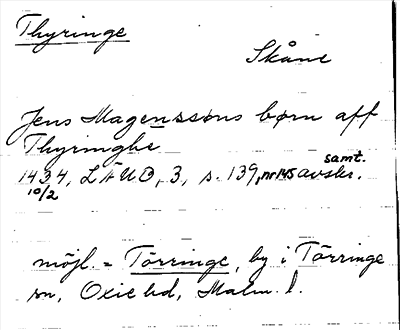 Thyringe
Skåne
Jens Magenssøns børn aff
Thyringhe
1434, LÆUD, 3, s. 139, nr 145 samt. avskr.
10/2
möjl. = Törringe, by i Törringe
sn, Oxie hd, Malm. l.